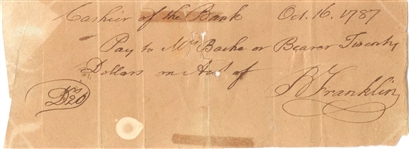 Cashier of the Bank Oct. 16. 1787
Pay to Mr Bache or Bearer Twenty
Dollars on Acct of
Drs 20 B Franklin